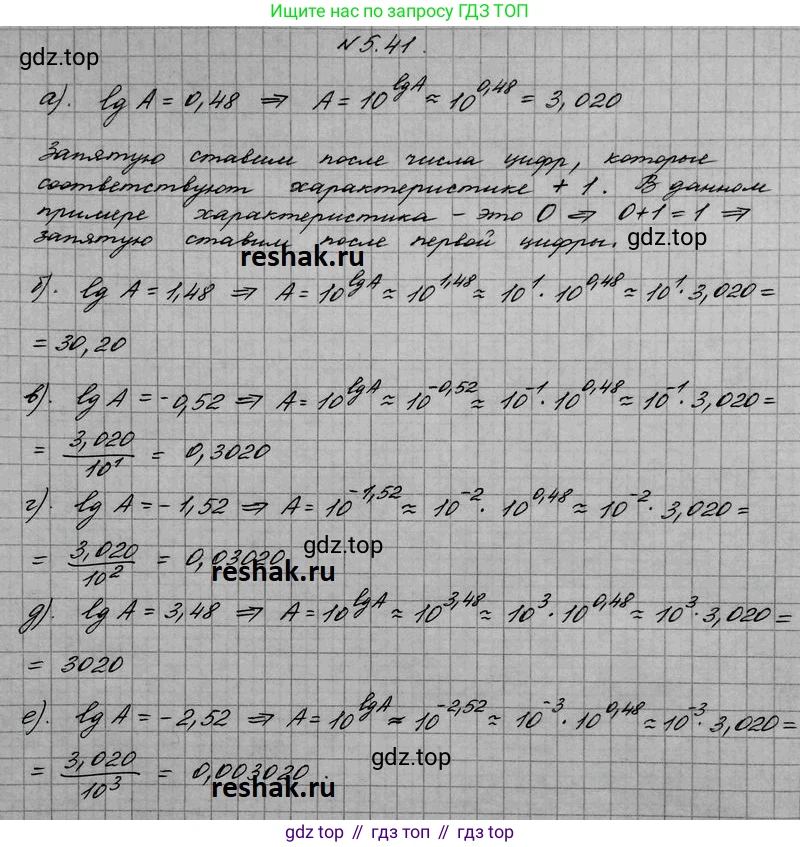 Ищите нас по запросу ГДЗ ТОП
gdz.top
№5.41.
а). lg A = 0,48 ⇒ A = 10^lgA ≈ 10^0,48 = 3,020
Запятую ставим после числа цифр, которые
соответствуют характеристике + 1. В данном
примере характеристика - это 0 ⇒ 0+1=1 ⇒
запятую ставим после первой цифры.
gdz.top
reshak.ru
б). lg A = 1,48 ⇒ A = 10^lgA ≈ 10^1,48 ≈ 10^1 · 10^0,48 ≈ 10^1 · 3,020 =
= 30,20
в). lg A = -0,52 ⇒ A = 10^lgA ≈ 10^-0,52 ≈ 10^-1 · 10^0,48 ≈ 10^-1 · 3,020 =
= 3,020/10^1 = 0,3020
г). lg A = -1,52 ⇒ A = 10^-1,52 ≈ 10^-2 · 10^0,48 ≈ 10^-2 · 3,020 =
= 3,020/10^2 = 0,03020
gdz.top
reshak.ru
д). lg A = 3,48 ⇒ A = 10^lgA ≈ 10^3,48 ≈ 10^3 · 10^0,48 ≈ 10^3 · 3,020 =
= 3020
е). lg A = -2,52 ⇒ A = 10^lgA ≈ 10^-2,52 ≈ 10^-3 · 10^0,48 ≈ 10^-3 · 3,020 =
= 3,020/10^3 = 0,003020.
gdz.top
reshak.ru
gdz top // гдз топ // gdz.top // гдз.топ